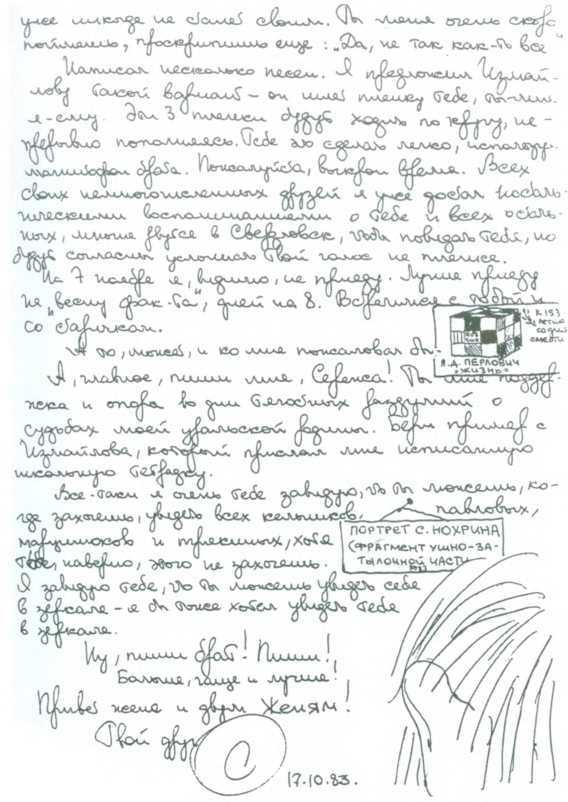 уже никогда не станет своим. Ты меня очень скоро
поймёшь, проскрипишь еще: „Да, не так как-то все"
Написал несколько песен. Я предложил Измай-
лову такой вариант – он шлет пленку тебе, ты-мне,
я-ему. Эти 3 пленки будут ходить по кругу, не-
прерывно пополняясь. Тебе это сделать легко, использу
магнитофон брата. Пожалуйста, выкрои время. Всех
своих немногочисленных друзей я уже достал носталь-
гическими воспоминаниями о тебе и всех осталь-
ных, многие рвутся в Свердловск, чтобы повидать тебя, но
будут согласны услышать твой голос на пленке.
На 7 ноября я, видимо, не приеду. Лучше приеду
на „весну фак-та", дней на 8. Встретимся с тобой и
со старичками.
А то, может, и ко мне пожаловал бы.
К 153
летию
со дня
смерти
Я.Д. ПЕРЛОВИЧ
"ЖИЗНЬ"
А, главное, пиши мне, Сереж! Ты мне поддер-
жка и опора в дни тягостных раздумий о
судьбах моей уральской родины. Бери пример с
Измайлова, который прислал мне исписанную
школьную тетрадку.
Все-таки я очень тебе завидую, что ты можешь, ко-
гда захочешь, увидеть всех павловых,
и хотя
тебе, наверно, этого не захочешь.
ПОРТРЕТ С. НОХРИНА
(ФРАГМЕНТ УШНО-ЗА-
ТЫЛОЧНОЙ ЧАСТИ
Я завидую тебе, что ты можешь увидеть себя
в зеркале – я бы тоже хотел увидеть тебя
в зеркале.
Ну, пиши брат! Пиши!
Больше, чаще и лучше!
Привет жене и двум Женям!
Твой друг
С
17.10.83.